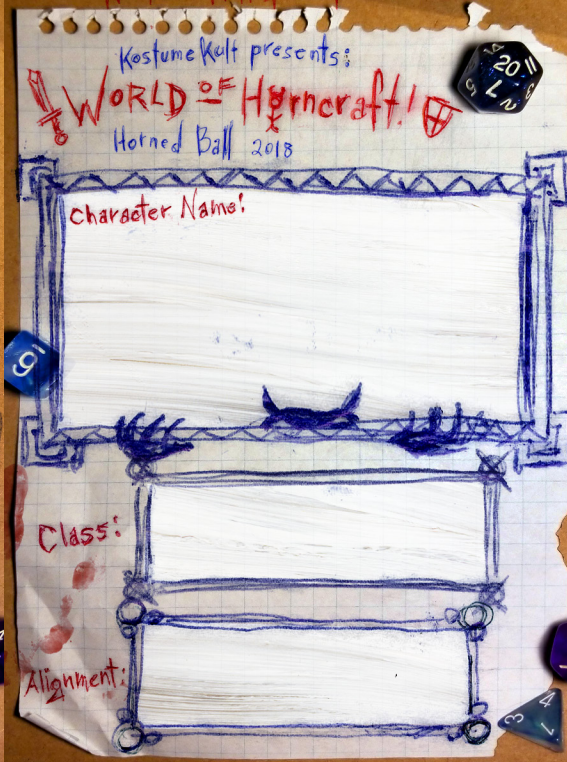 Kostume Kult presents:
WORLD OF Horncraft!
Horned Ball 2018
Character Name:
Class:
Alignment:
20
14
11
5
7
2
3
9
3
4
1